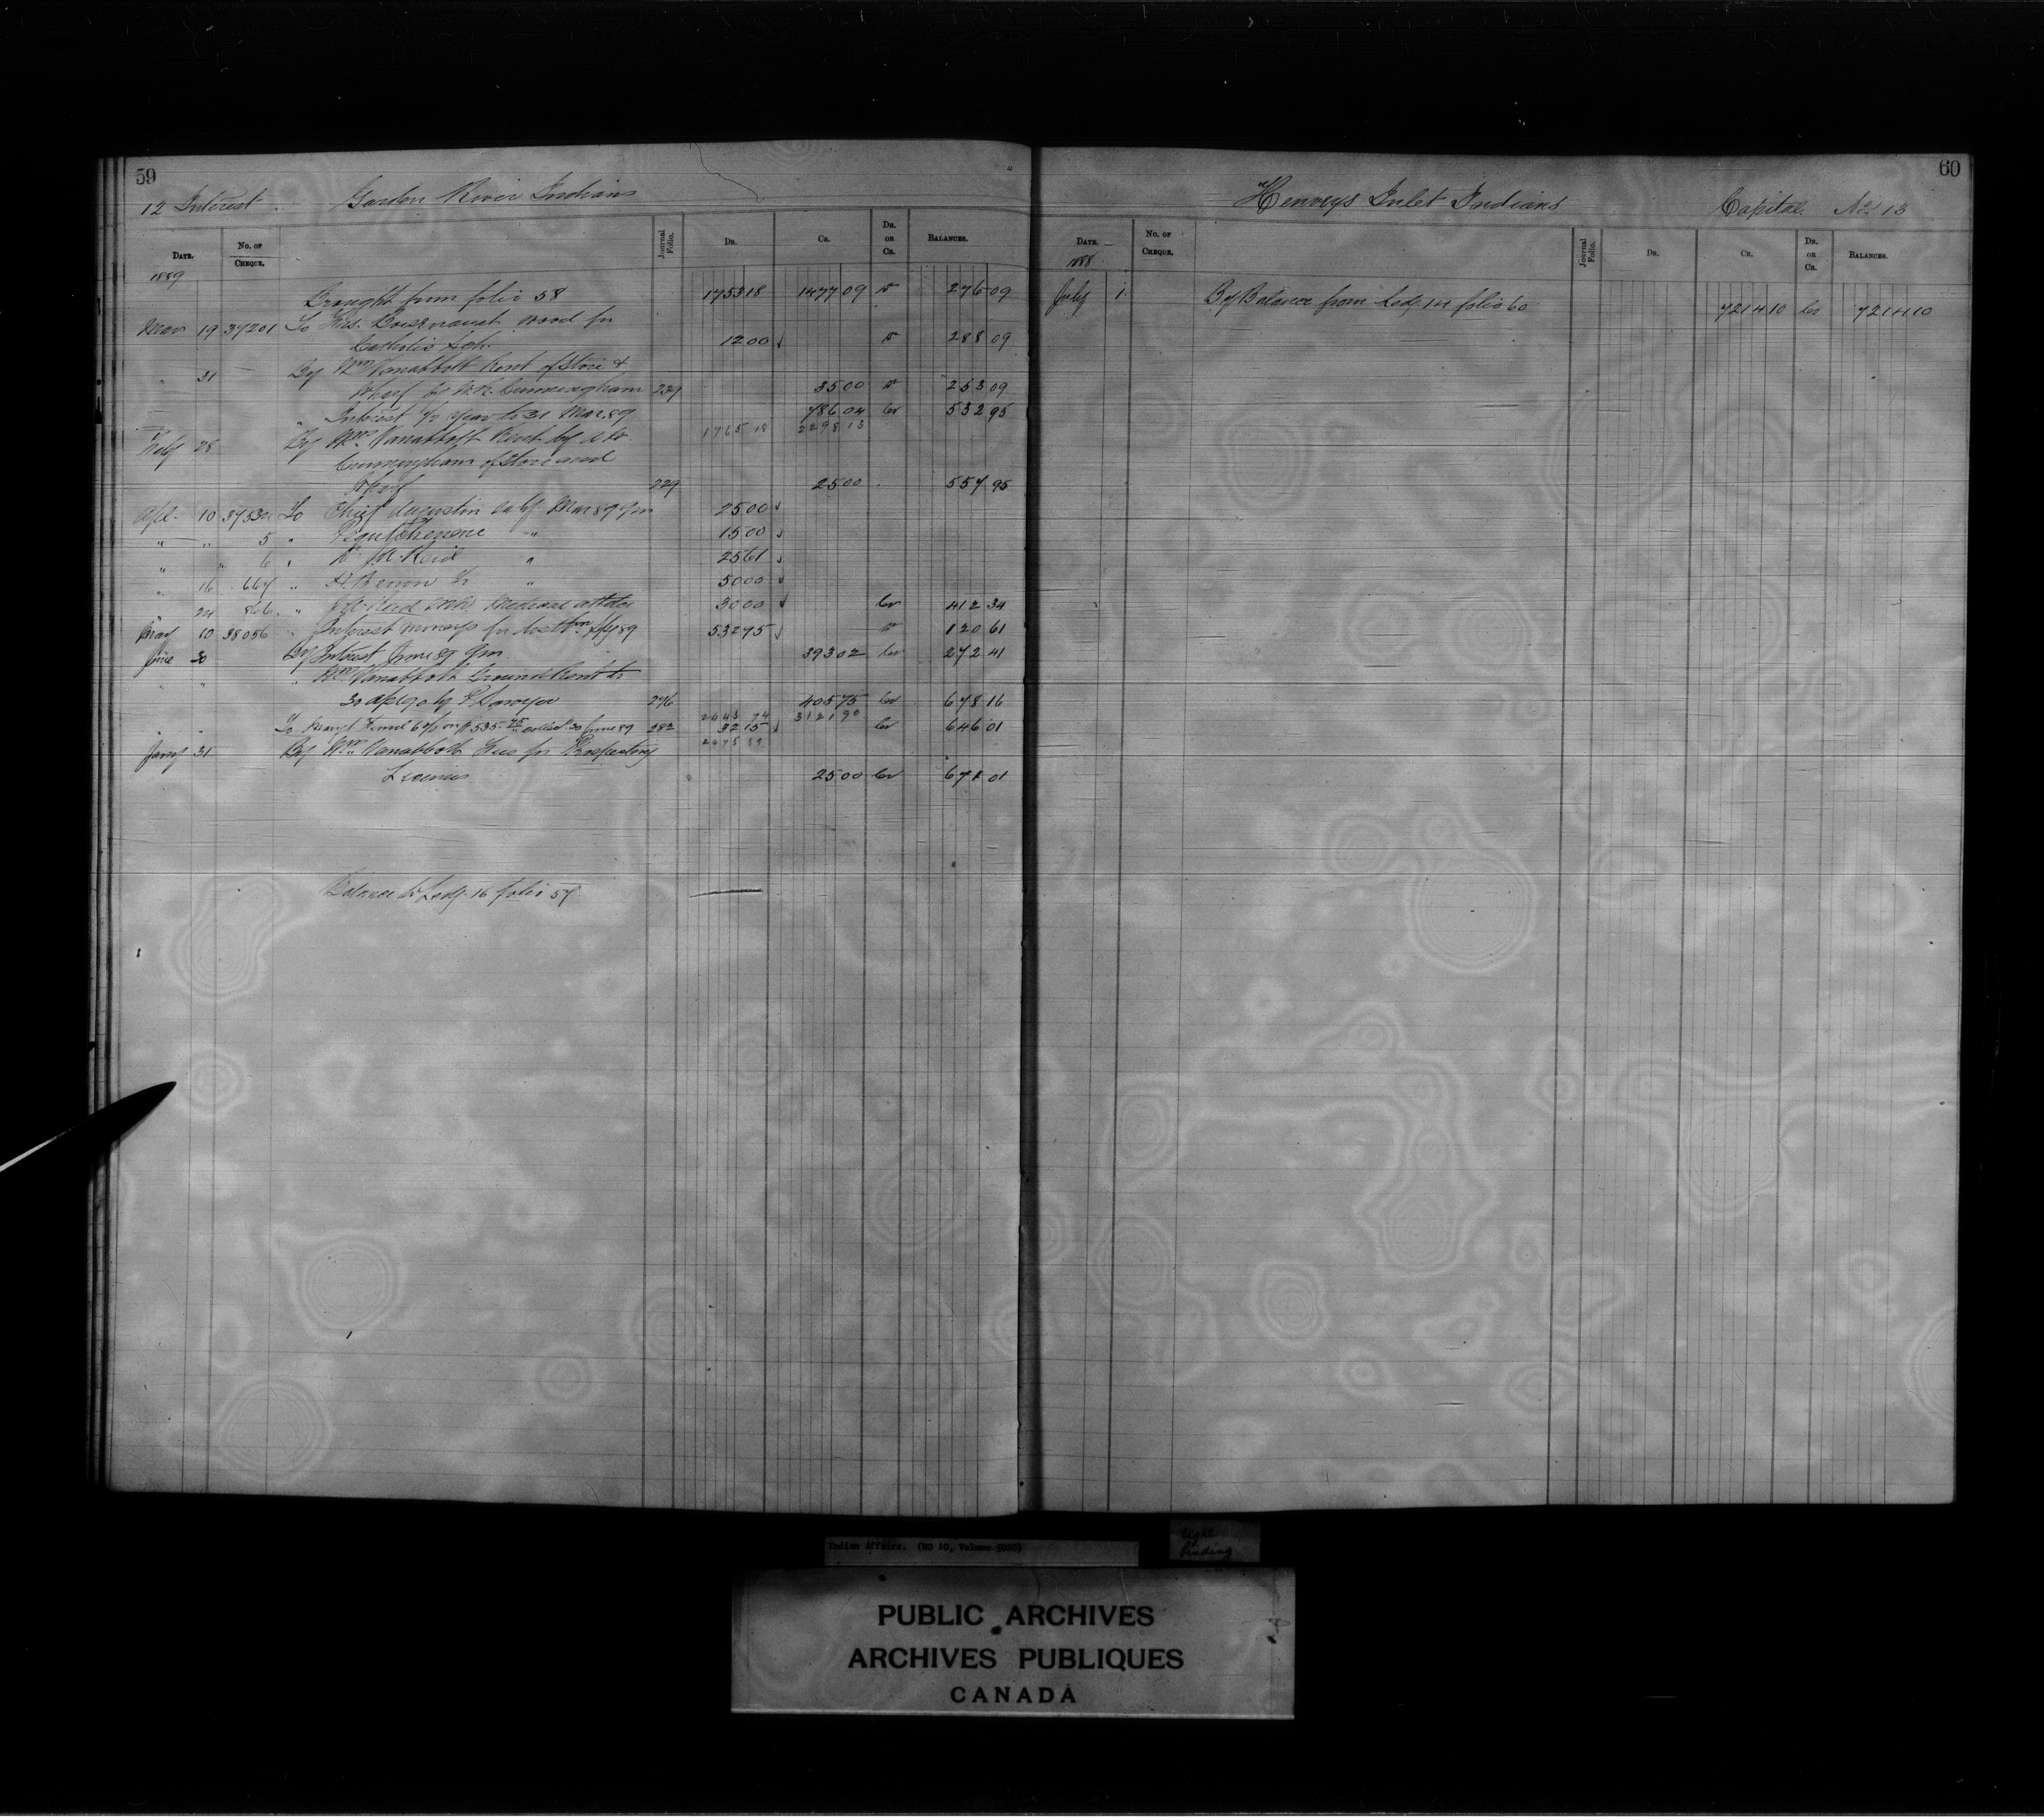 59
12 Interest. Garden River Indians
DATE. No. OF CHEQUE. Journal Folio. DR. CR. DR. OR CR. BALANCES.
1889
Brought from folio 58 1753 18 1477 09 Dr 276 09
Mar 19 37201 To Mrs. wood for
Catholic Sch. 12 00 Dr 288 09
" 31 By Wm Vanabbott Rent of Store &
Wharf by W.R. Cunningham 239 35 00 Dr 253 09
" Interest 1/2 year to 31 Mar. 89 786 04 Cr 532 95
1765 18 2298 13
Feby 28 By Wm Vanabbott Rent by
Cunningham of Store and
Wharf 229 25 00 557 95
Apl. 10 3753 To Chief Augustin Saly Mar 89 qr 25 00
" " 5 " " 15 00
" " 6 " Reid " 25 61
" 16 667 " " 50 00
" 24 866 " Reid Medical attdce 30 00 Cr 412 34
May 10 38056 " Interest moneys for distbn 89 532 95 Dr 120 61
June 30 By Interest June 89 qr 393 02 Cr 272 41
" " " Wm Vanabbott Ground Rent to
30 Apl 90 by P. Sawyer 276 405 75 Cr 678 16
2443 74 3121 90
" " To Mangt Fund 6% on $535.75 collect. 30 June 89 282 32 15 Cr 646 01
2475 89
Jany 31 By Wm Vanabbott Fees for Prospecting
Licenses 25 00 Cr 671 01
Balance to Ledg. 16 folio 57
60
Henveys Inlet Indians Capital. No. 13
DATE. No. OF CHEQUE. Journal Folio. DR. CR. DR. OR CR. BALANCES.
1888
July 1 By Balance from Ledg. 14 folio 60 7214 10 Cr 7214 10
Indian Affairs. (RG 10, Volume 5920)
tight
binding
PUBLIC ARCHIVES
ARCHIVES PUBLIQUES
CANADA